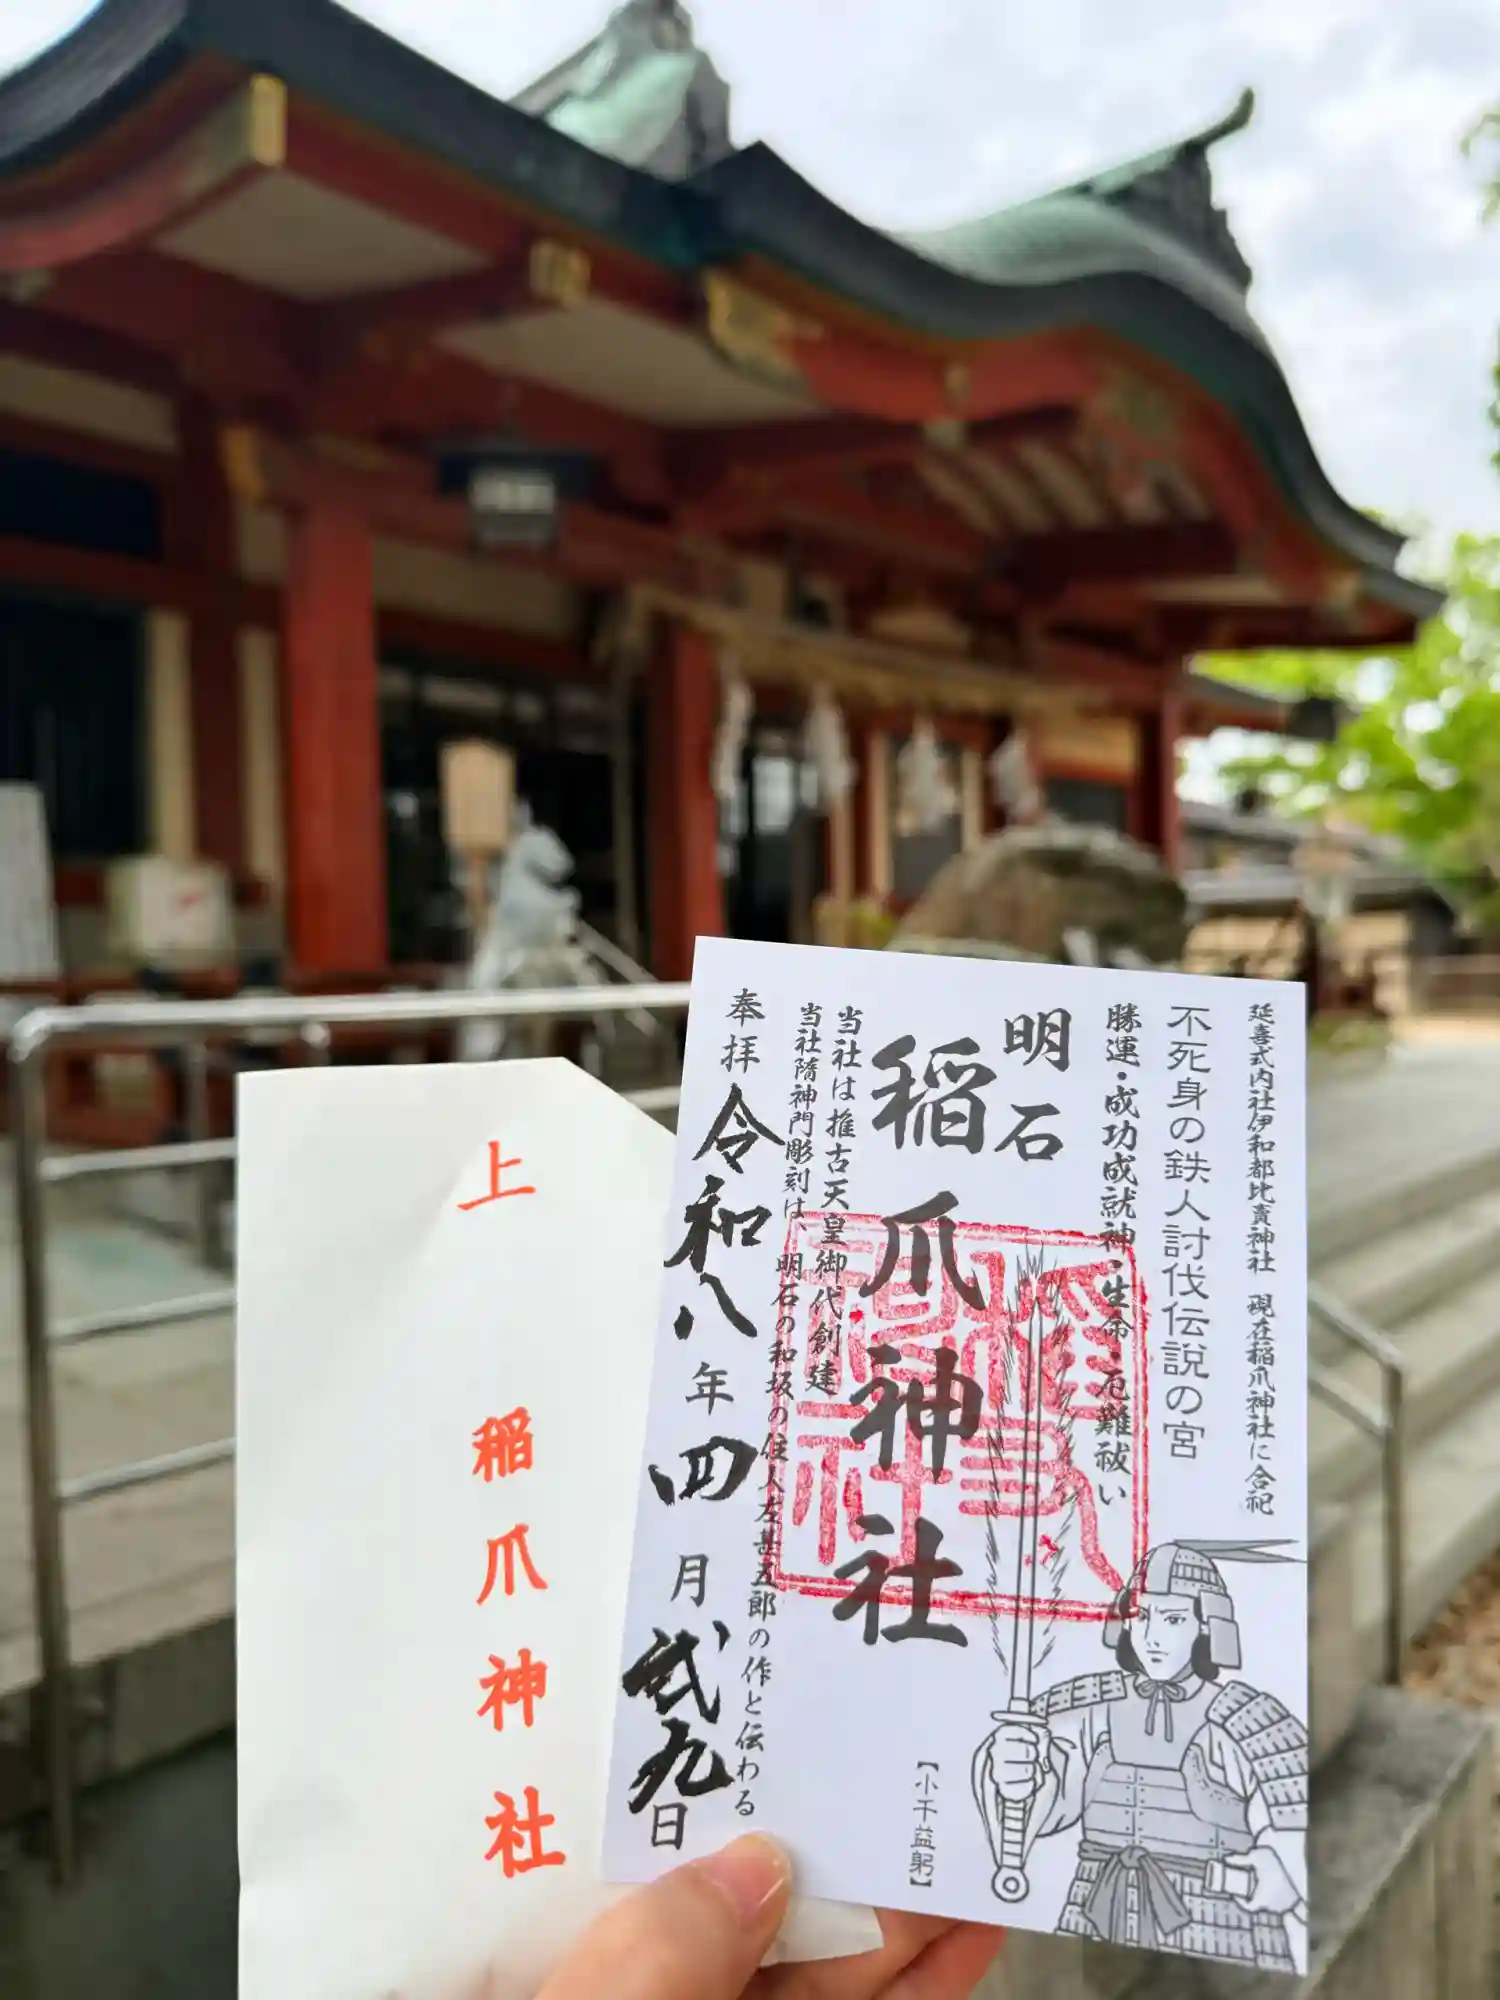 延喜式内社伊和都比賣神社 現在稲爪神社に合祀
不死身の鉄人討伐伝説の宮
勝運・成功成就神・生命・厄難祓い
明石
稲爪神社
当社は推古天皇御代創建
当社隋神門彫刻は、明石の和坂の住人左甚五郎の作と伝わる
奉拝 令和八年四月弐九日
【小千益躬】
上
稲爪神社